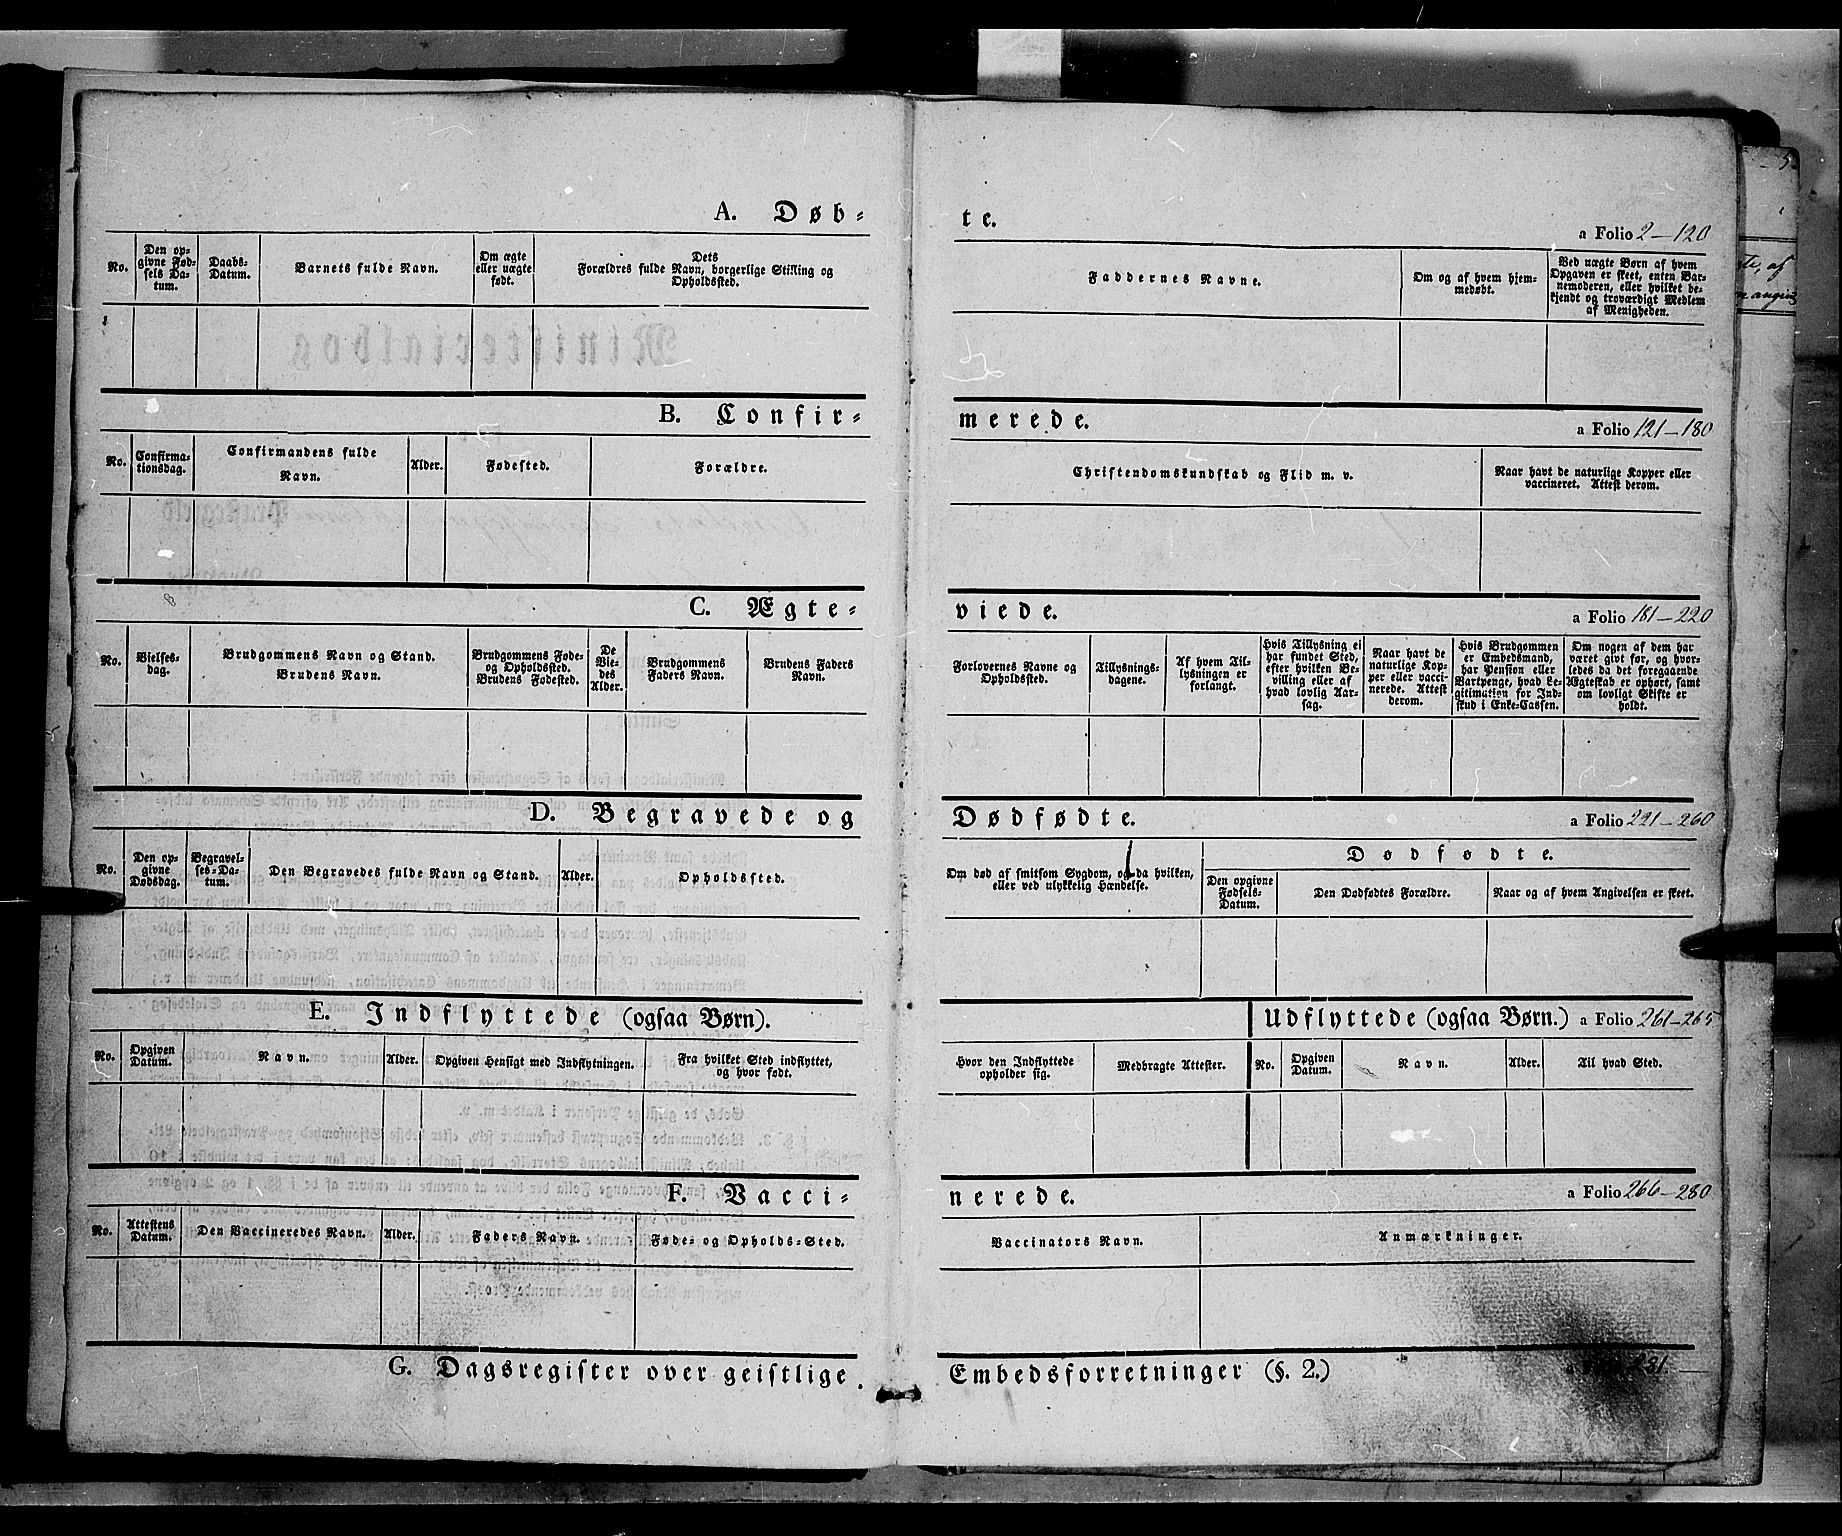 A. Døb-te. a Folio 2-120
No.
Den op-
givne Fød-
sels Da-
tum.
Daabs-
Datum.
Barnets fulde Navn.
Om ægte
eller uægte
født.
Dets
Forældres fulde Navn, borgerlige Stilling og
Opholdssted.
Faddernes Navne.
Om og af hvem hjem-
medøbt.
Ved uægte Børn af hvem
Opgaven er skeet, enten Bar-
nemoderen, eller hvilket be-
kjendt og troværdigt Medlem
af Menigheden.
B. Confir-merede. a Folio 121-180
No.
Confirma-
tionsdag.
Confirmandens fulde
Navn.
Alder.
Fødested.
Forældre.
Christendomskundskab og Flid m. v.
Naar havt de naturlige Kopper eller
vaccineret. Attest derom.
C. Ægte-viede. a Folio 181-220
No.
Vielses-
dag.
Brudgommens Navn og Stand.
Brudens Navn.
Brudgommens Føde-
og Opholdssted.
Brudens Fødested.
De
Vie-
des
Alder.
Brudgommens
Faders Navn.
Brudens Faders
Navn.
Forlovernes Navne og
Opholdssted.
Tillysnings-
dagene.
Af hvem Til-
lysningen er
forlangt.
Hvis Tillysning ei
har fundet Sted,
efter hvilken Be-
villing eller af
hvad lovlig Aar-
sag.
Naar havt de
naturlige Kop-
per eller vacci-
nerede. Attest
derom.
Hvis Brudgommen
er Embedsmand,
har Pension eller
Vartpenge, hvad Le-
gitimation for Ind-
skud i Enke-Cassen.
Om nogen af dem har
været givt før, og hvor-
ledes da det foregaaende
Ægteskab er ophørt, samt
om lovligt Skifte er
holdt.
D. Begravede og Dødfødte. a Folio 221-260
No.
Den op-
givne
Dødsdag.
Begravel-
ses-Da-
tum.
Den Begravedes fulde Navn og Stand.
Alder.
Opholdssted.
Om død af smitsom Sygdom, og da hvilken,
eller ved ulykkelig Hændelse.
Dødfødte.
Den opgivne
Fødsels-
Datum.
Den Dødfødtes Forældre.
Naar og af hvem Angivelsen er skeet.
E. Indflyttede (ogsaa Børn).
Udflyttede (ogsaa Børn.) a Folio 261-265
No.
Opgiven
Datum.
Navn.
Alder.
Opgiven Hensigt med Indflytningen.
Fra hvilket Sted indflyttet,
og hvor født.
Hvor den Indflyttede
opholder sig.
Medbragte Attester.
No.
Opgiven
Datum.
Navn.
Alder.
Til hvad Sted.
F. Vacci-nerede. a Folio 266-280
No.
Attestens
Datum.
Den Vaccineredes Navn.
Alder.
Faders Navn.
Føde- og Opholds-Sted.
Vaccinators Navn.
Anmærkninger.
G. Dagsregister over geistlige Embedsforretninger (§. 2.) 281-